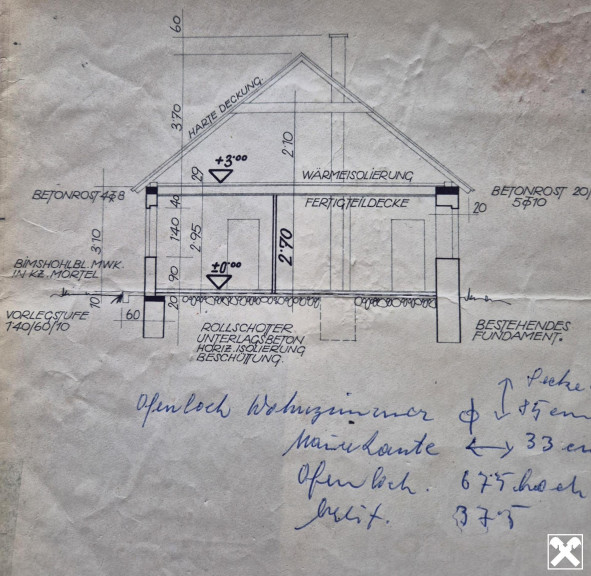 60
3.70
HARTE DECKUNG.
2.10
+3.00
29
WÄRMEISOLIERUNG
BETONROST 4∅8
40
FERTIGTEILDECKE
BETONROST 20/
5∅10
20
3.10
1.40
2.95
2.70
BIMSHOHLBL. MWK.
IN KZ. MÖRTEL
90
±0.00
10
20
VORLEGSTUFE
140/60/10
60
ROLLSCHOTTER
UNTERLAGSBETON
HORIZ. ISOLIERUNG
BESCHÜTTUNG.
BESTEHENDES
FUNDAMENT.
Ofenloch Wohnzimmer
85 cm
Mauerkante ↔ 33 cm
Ofenloch. 67.5 hoch
breit. 37.5